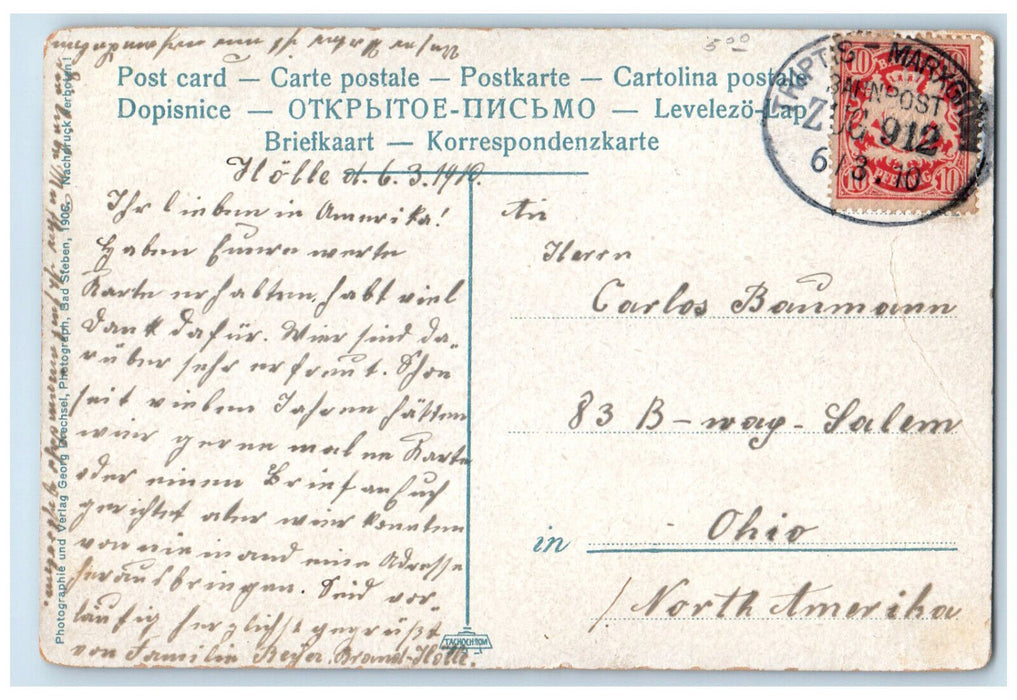 Post card — Carte postale — Postkarte — Cartolina postale
Dopisnice — ОТКРЫТОЕ-ПИСЬМО — Levelező-Lap
Briefkaart — Korrespondenzkarte
BAHNPOST
Z 912
6/3.10
10 10
10 PFENNIG 10
Hölle d. 6.3.1910.
Ihr lieben in Amerika!
Haben Euere werte
Karte erhalten, habt viel
Dank dafür. Wier sind da-
rüber sehr erfreut. Schon
seit vielen Jahren hätten
wier gerne mal ne Karte
oder einen Brief an Euch
gerichtet aber wier konnten
von niemand eine Adresse
herausbringen. Seid vor-
läufig herzlichst gegrüßt
von Familie Beyer. Brand-Hölle.
An
Herrn
Carlos Baumann
83 B-way- Salem
in Ohio
/ North Amerika
TACHOCHROM
Photographie und Verlag Georg Drechsel, Photograph, Bad Steben, 1906. Nachdruck verboten!